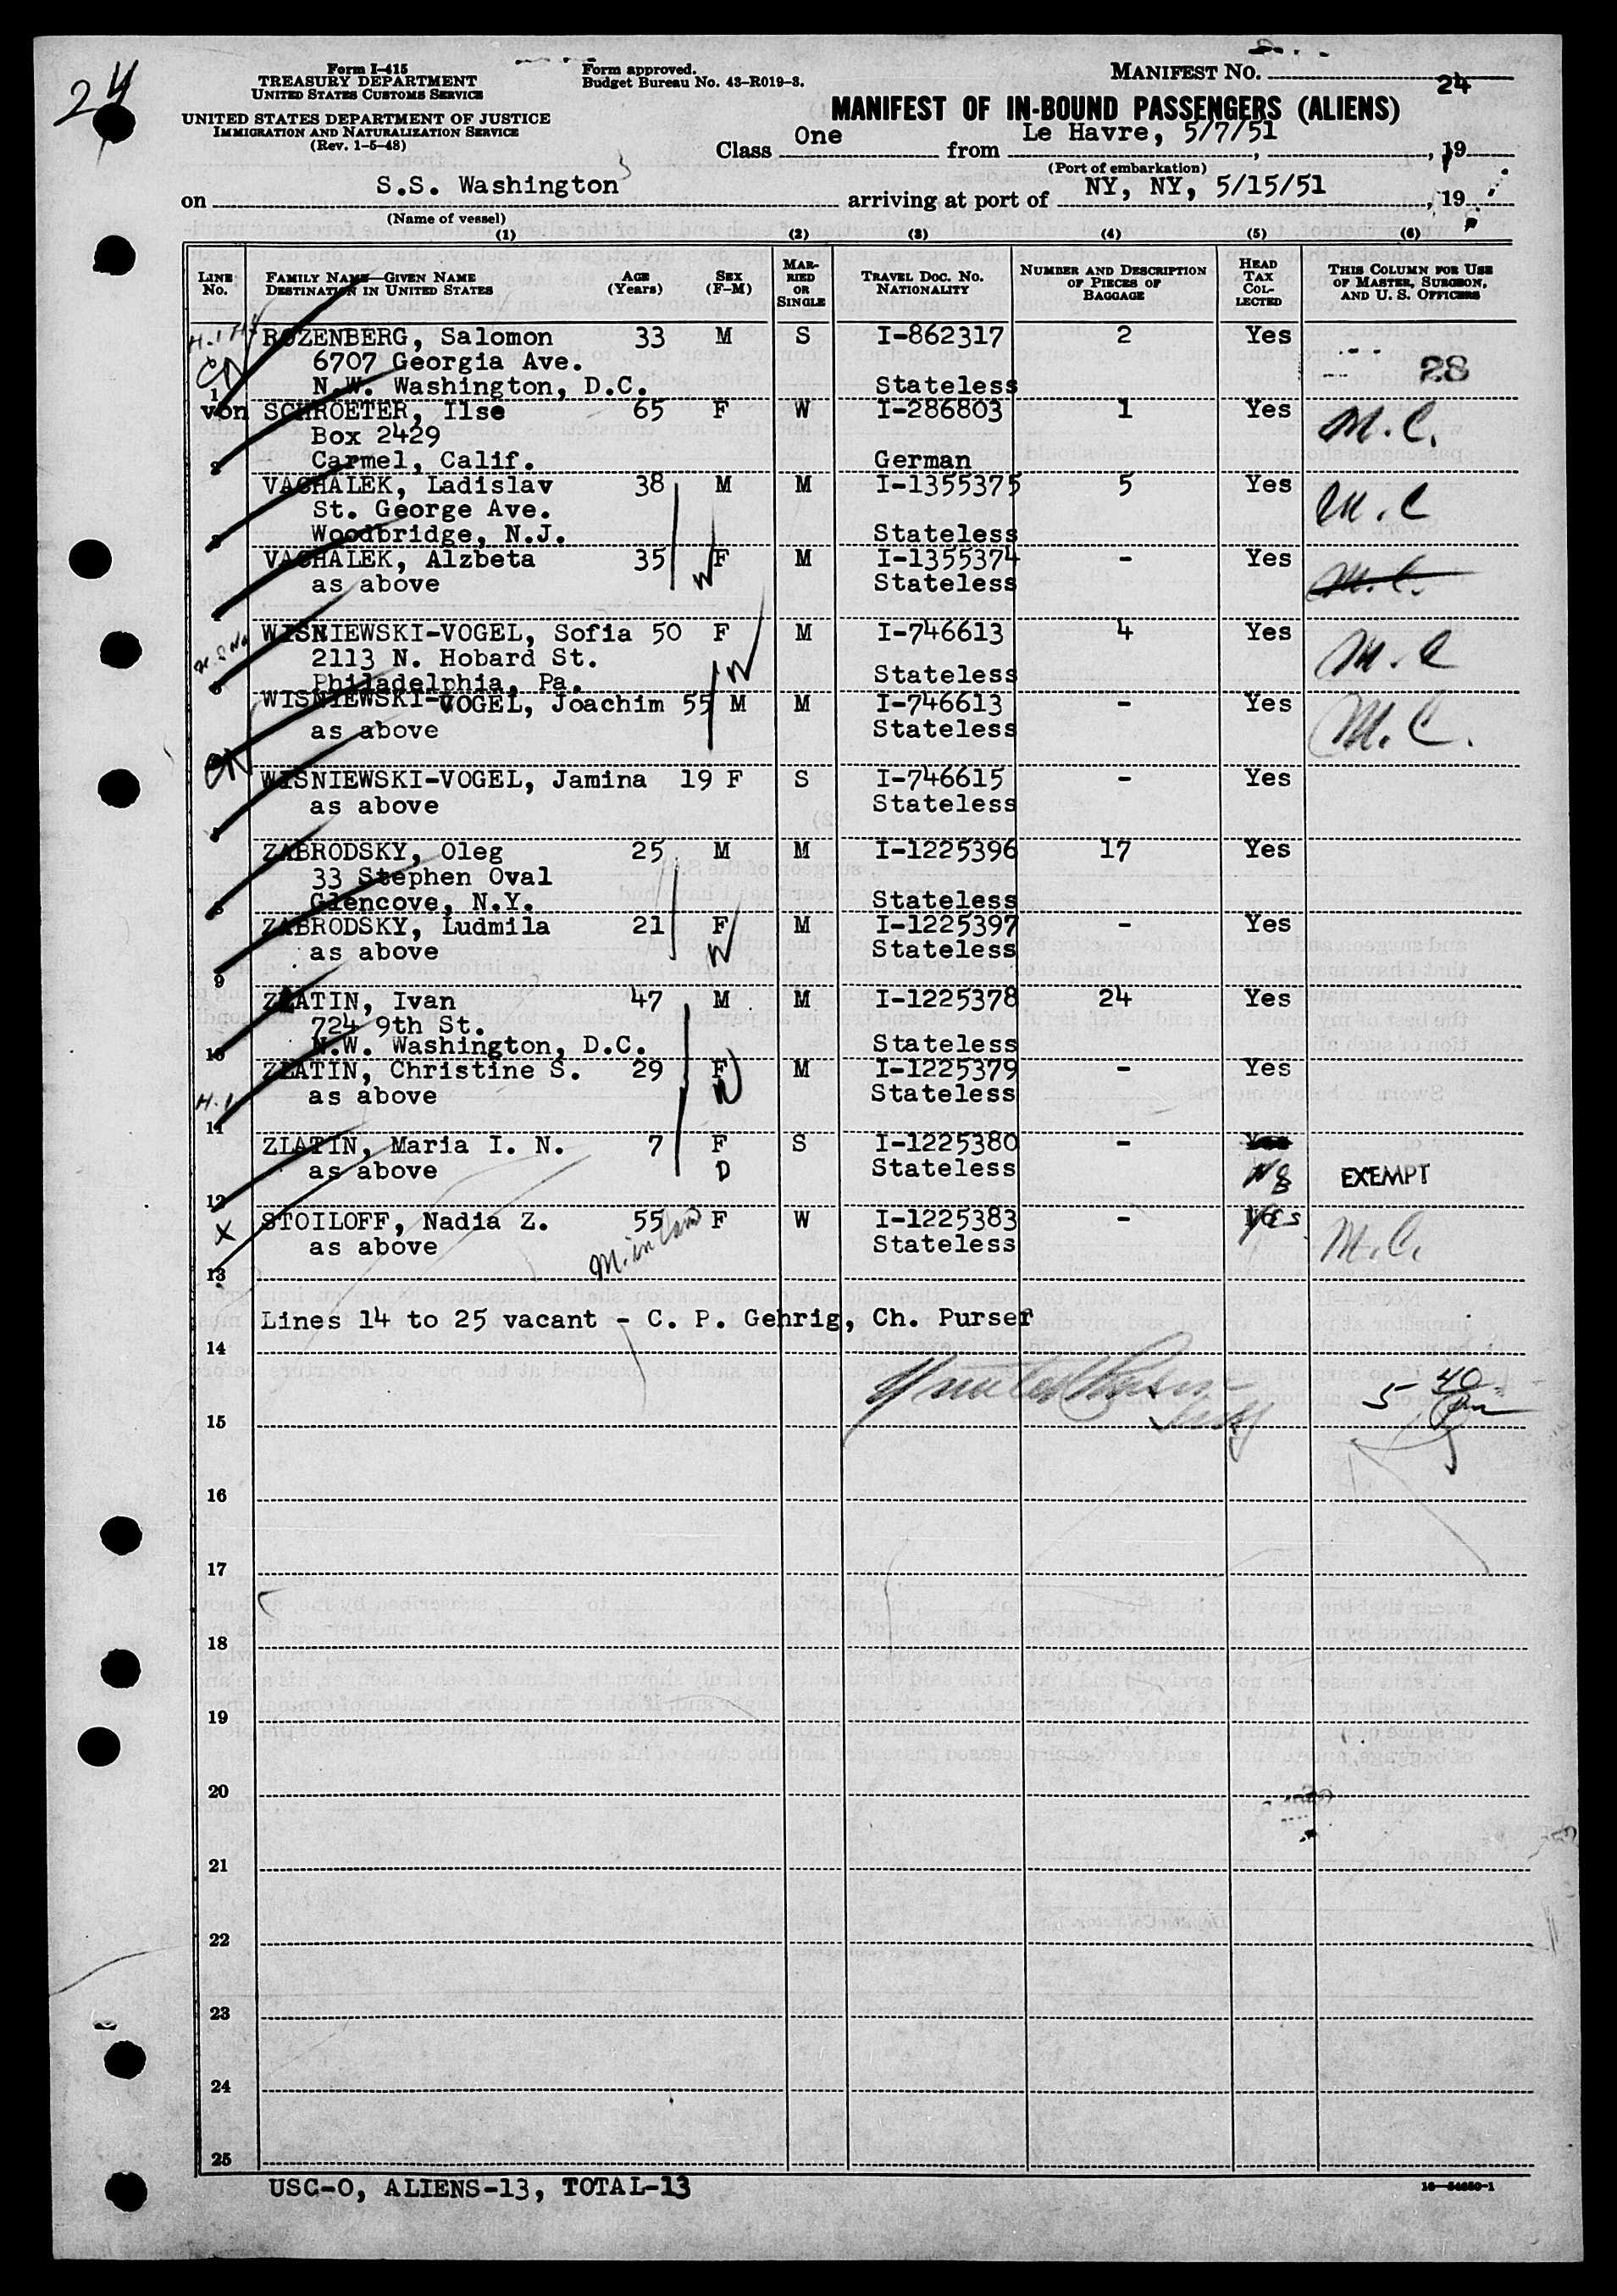 24
Form I-415
TREASURY DEPARTMENT
UNITED STATES CUSTOMS SERVICE
UNITED STATES DEPARTMENT OF JUSTICE
IMMIGRATION AND NATURALIZATION SERVICE
(Rev. 1-5-48)
Form approved.
Budget Bureau No. 43-R019-3.
MANIFEST NO.
24
MANIFEST OF IN-BOUND PASSENGERS (ALIENS)
Class One from Le Havre, 5/7/51, 19
(Port of embarkation)
on S.S. Washington arriving at port of NY, NY, 5/15/51, 19
(Name of vessel)
(1) (2) (3) (4) (5) (6)
LINE NO. FAMILY NAME—GIVEN NAME DESTINATION IN UNITED STATES AGE (Years) SEX (F-M) MARRIED OR SINGLE TRAVEL DOC. NO. NATIONALITY NUMBER AND DESCRIPTION OF PIECES OF BAGGAGE HEAD TAX COLLECTED THIS COLUMN FOR USE OF MASTER, SURGEON, AND U. S. OFFICERS
ROZENBERG, Salomon 33 M S I-862317 2 Yes
6707 Georgia Ave. 28
1 N.W. Washington, D.C. Stateless
von SCHROETER, Ilse 65 F W I-286803 1 Yes M.C.
Box 2429
2 Carmel, Calif. German
VACHALEK, Ladislav 38 M M I-1355375 5 Yes M.C
St. George Ave.
3 Woodbridge, N.J. Stateless
VACHALEK, Alzbeta 35 F M I-1355374 - Yes M.C.
as above W Stateless
WISNIEWSKI-VOGEL, Sofia 50 F M I-746613 4 Yes M.C
2113 N. Hobard St. W
Philadelphia, Pa. Stateless
WISNIEWSKI-VOGEL, Joachim 55 M M I-746613 - Yes M.C.
as above Stateless
WISNIEWSKI-VOGEL, Jamina 19 F S I-746615 - Yes
as above Stateless
ZABRODSKY, Oleg 25 M M I-1225396 17 Yes
33 Stephen Oval
8 Glencove, N.Y. Stateless
ZABRODSKY, Ludmila 21 F M I-1225397 - Yes
as above W Stateless
9
ZLATIN, Ivan 47 M M I-1225378 24 Yes
724 9th St.
10 N.W. Washington, D.C. Stateless
ZLATIN, Christine S. 29 F M I-1225379 - Yes
H.1 as above W Stateless
11
ZLATIN, Maria I. N. 7 F S I-1225380 - Yes
as above D Stateless EXEMPT
12
X STOILOFF, Nadia Z. 55 F W I-1225383 - Yes M.C.
as above Stateless
13
Lines 14 to 25 vacant - C. P. Gehrig, Ch. Purser
14
5 40 pm
15
16
17
18
19
20
21
22
23
24
25
USC-0, ALIENS-13, TOTAL-13